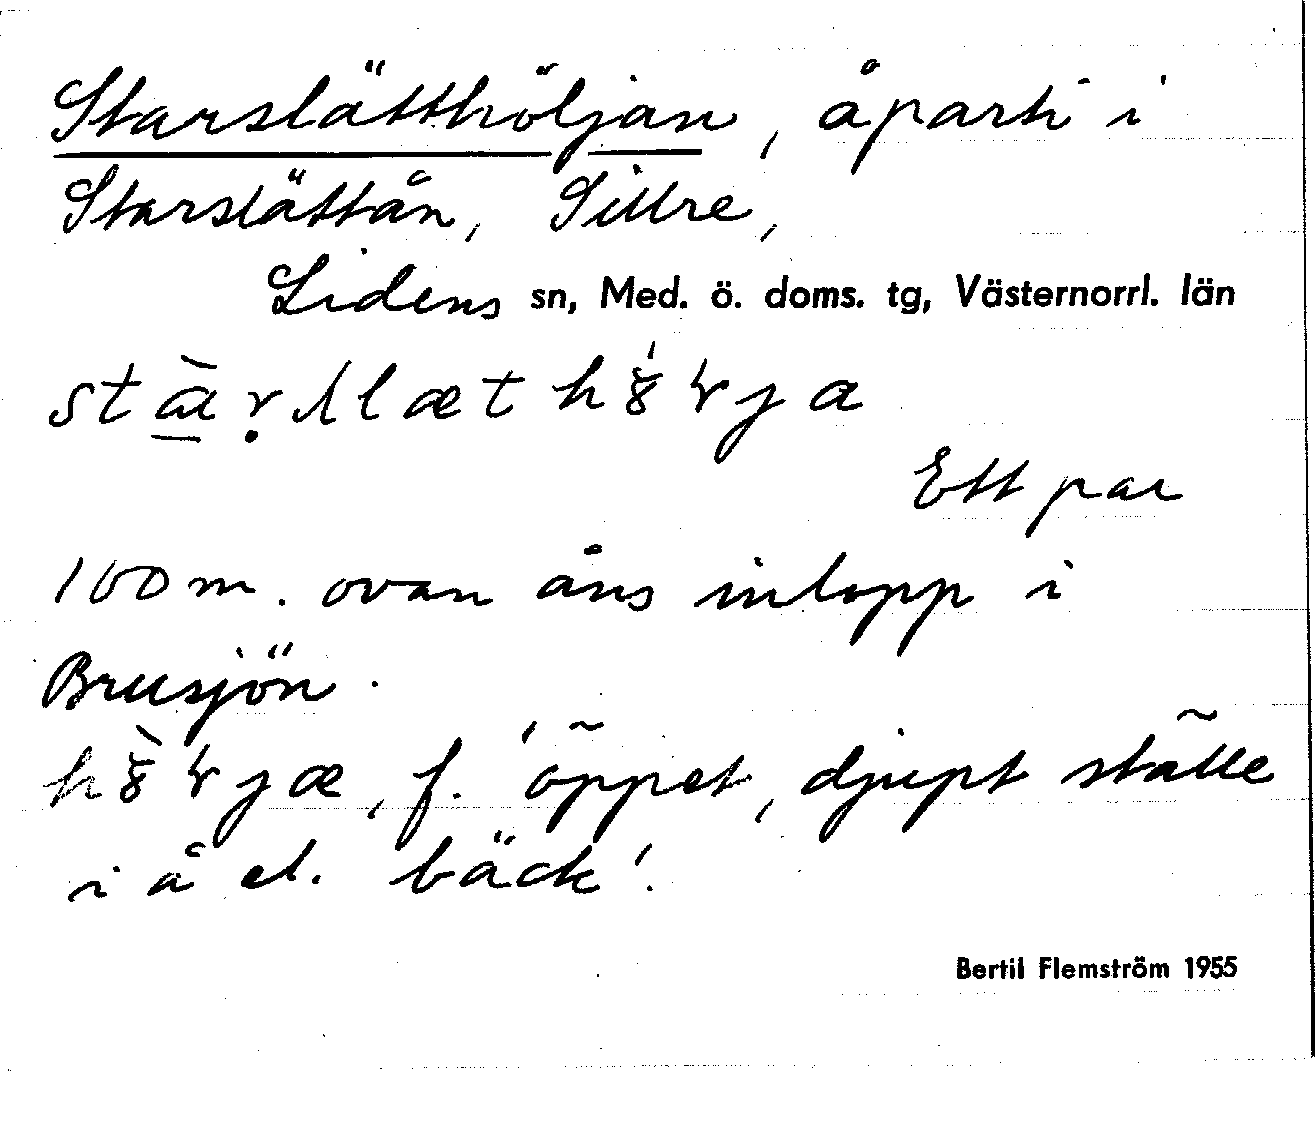 Starslätthöljan, åparti i
Starslättån, Sillre,
Lidens sn, Med. ö. doms. tg, Västernorrl. län
Ett par
100 m. ovan åns inlopp i
Brusjön.
f. 'öppet, djupt ställe
i å el. bäck'.
Bertil Flemström 1955